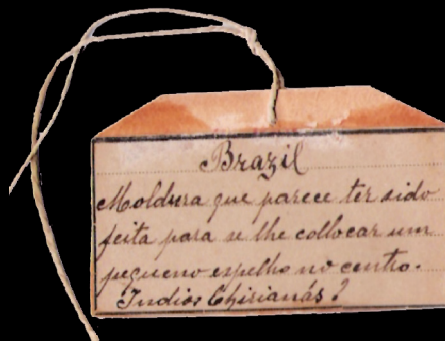 Brazil
Moldura que parece ter sido
feita para se lhe collocar um
pequeno espelho no centro.
Indios Chirianás?